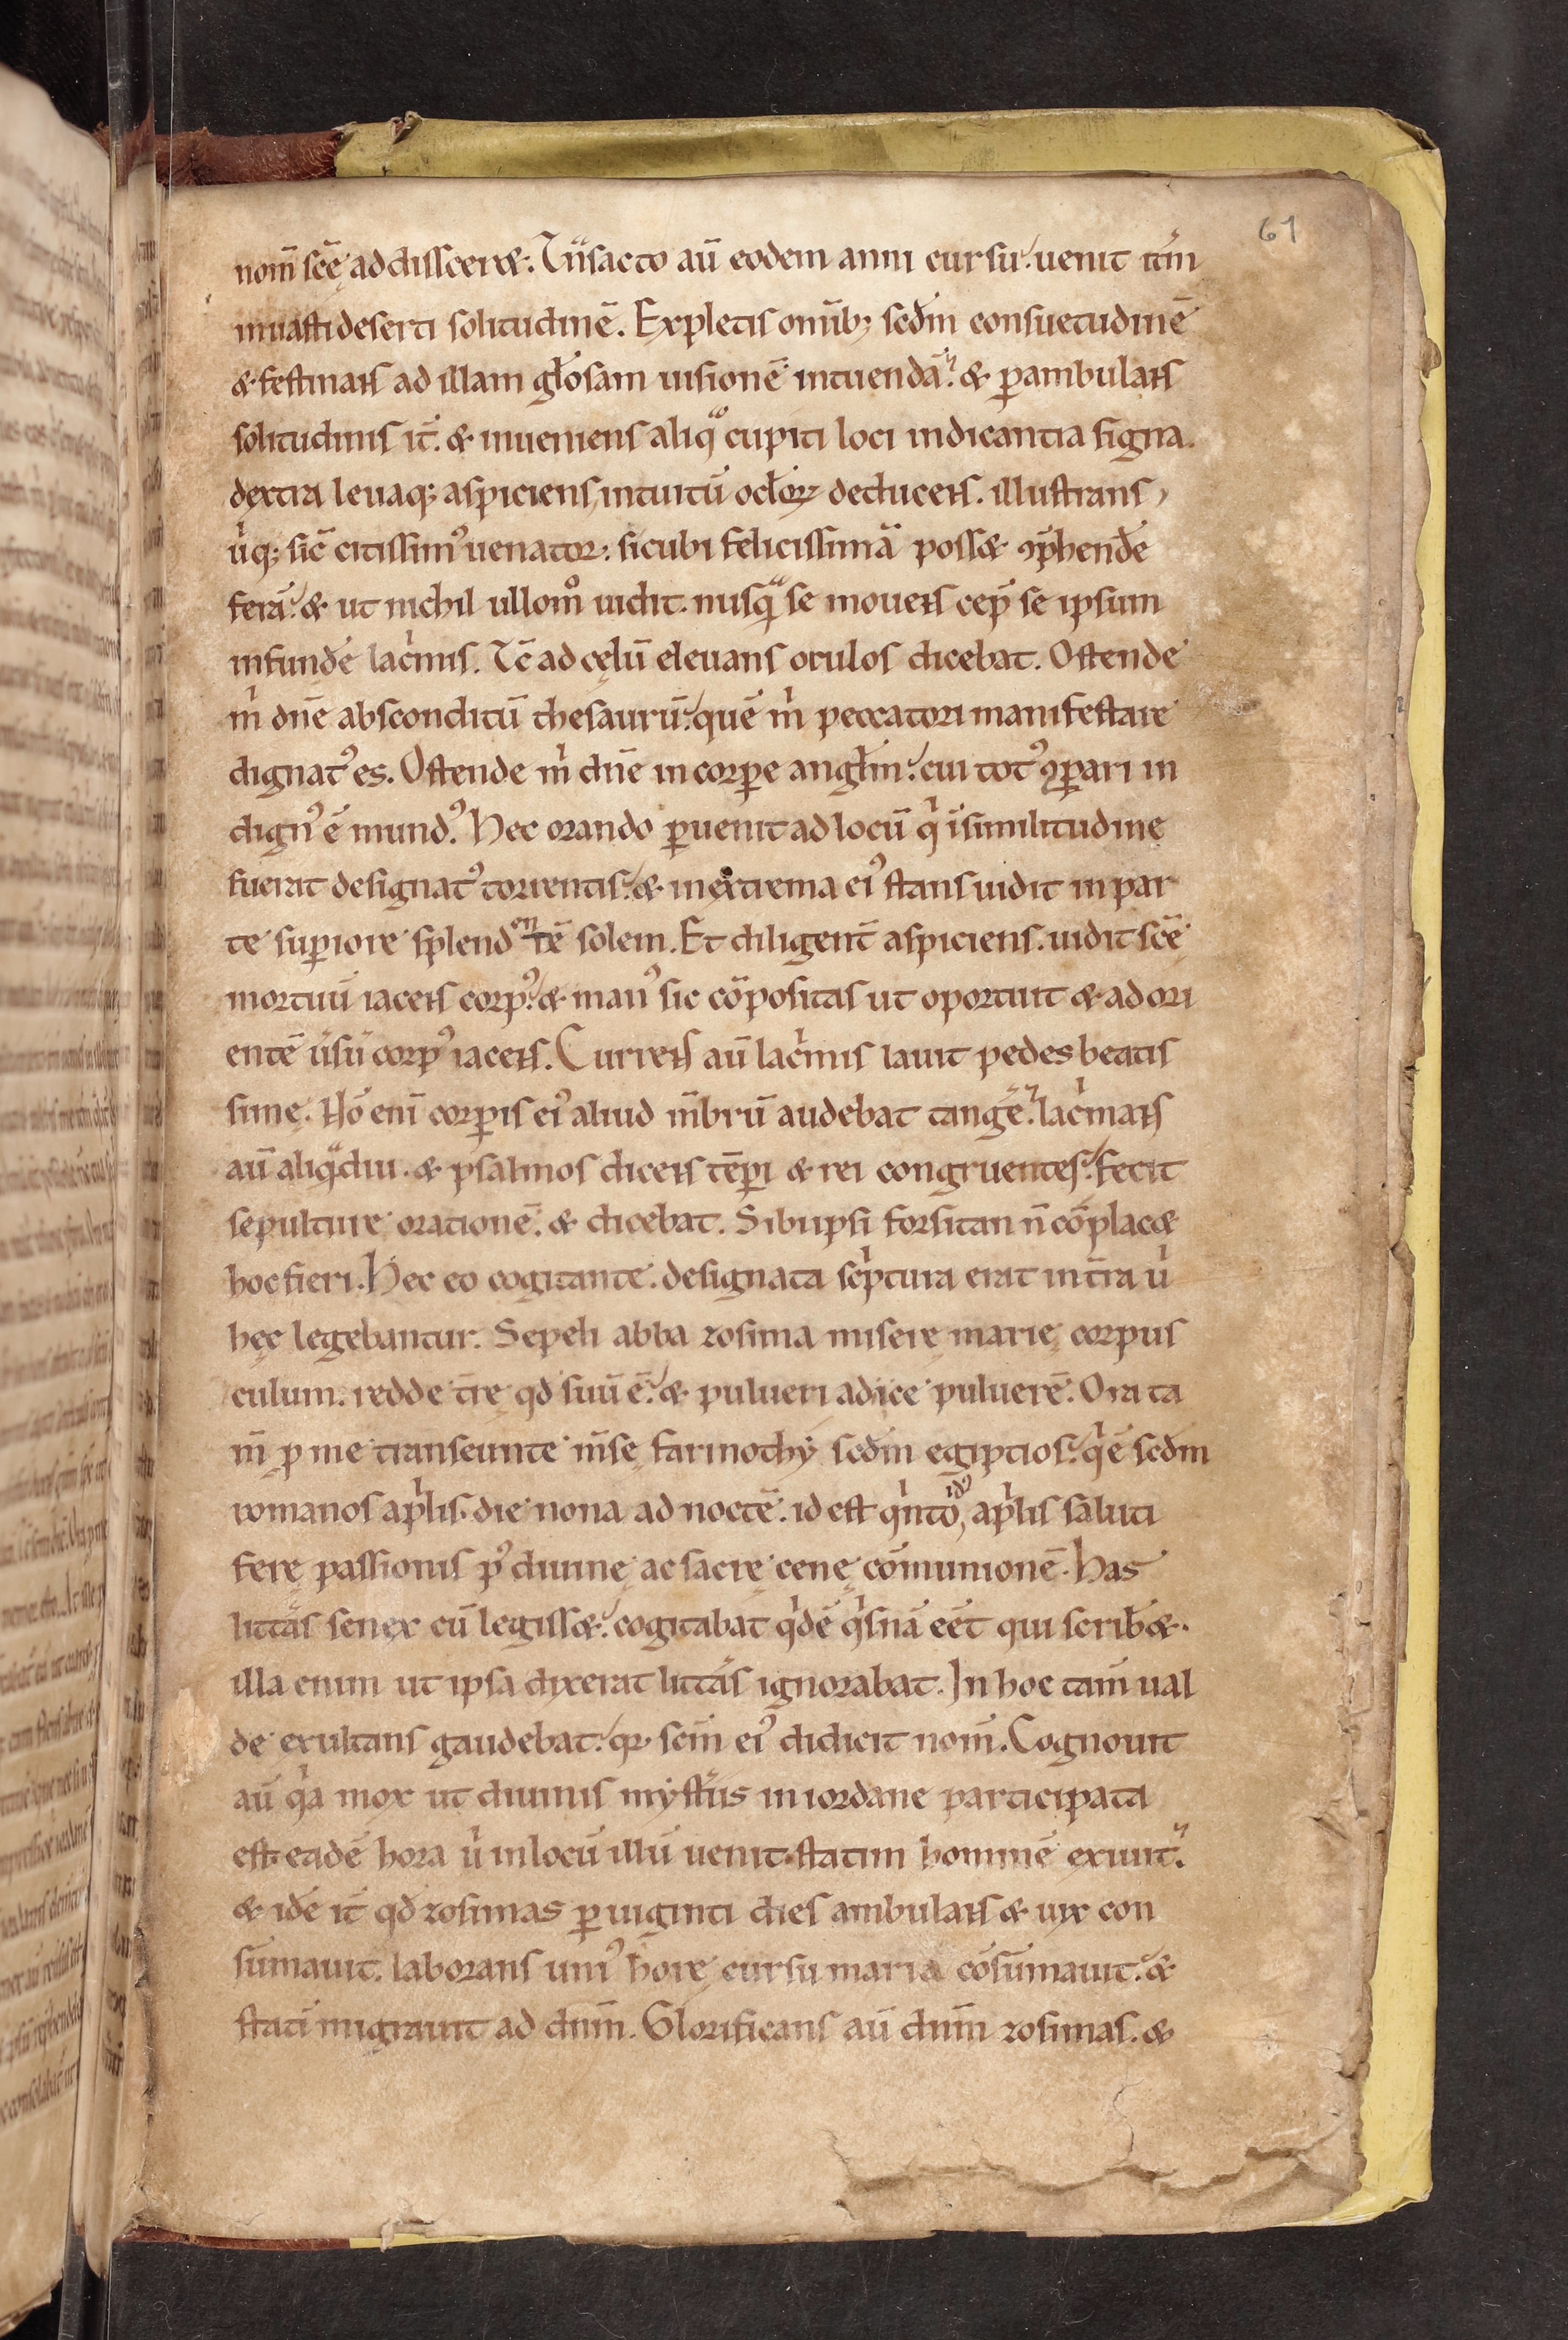 61
nom̄ scę̄ addisceret. Tn̄sacto aū eodem anni cursu. uenit itm̄
in uasti deserti solitudinē. Expletis omīb; scđm consuetudinē
& festinans ad illam gl̄osam uisionē intuendā. & p̱ambulans
solitudinis it̄. & inueniens aliqͦ cupiti loci indicantia signa.
dextra leuaq; aspiciens, intuitū ocl̄oꝝ deducens. illustrans,
u̇q; sic̄ citissimꝰ uenator. sicubi felicissimā posset ꝯp̄hendē
ferā. & ut nichil ullom̊ uidit. nusqᷓ se mouens cep̄ se ipsum
infundē lac̍mis. Tc̄ ad cęlū eleuans oculos dicebat. Ostende
m̍ dn̄e absconditū thesaurū. quē m̍ peccatori manifestare
dignatꝰ es. Ostende m̍ dn̄e in corꝑe angl̄m. cui totꝰ ꝯꝑari in
dignꝰ ē mundꝰ. Hec orando ꝑuenit ad locū q̍ ī similitudine
fuerat designatꝰ torrentis. & in extrema eiꝰ stans uidit in par
te suꝑiore splendentē solem. Et diligent̄ aspiciens. uidit scę̄
mortuū iacens corpꝰ. & manꝰ sic cōpositas ut oportuit & ad ori
entē u̇sū corpꝰ iacens. Currens aū lac̍mis lauit pedes beatis
simę. Nō eni corꝑis eiꝰ aliud m̄brū audebat tangē. lac̍mans
aū aliqᷓdiu. & psalmos dicens tēꝑi & rei congruentes. fecit
sepulture orationē. & dicebat. Sibi ipsi forsitan n̄ cōplacet
hoc fieri. Hec eo cogitante. designata sc̍ptura erat in tr̄a u̍
hęc legebantur. Sepeli abba zosima miserę marię corpus
culum. redde tr̄ę qđ suū ē. & pulueri adice puluerē. Ora ta
m̄ ꝓ me transeunte m̄se farmothẏ scđm egiptios. q̍ ē scđm
romanos ap̍lis. die nona ad noctē. id est q̍nto idꝰ, ap̍lis saluti
ferę passionis pꝰ diuinę ac sacrę cenę cōmunionē. Has
litt̄as senex cū legisset. cogitabat q̍dē q̍snā eēt qui scriberet.
illa enim ut ipsa dixerat litt̄as ignorabat. In hoc tam̄ ual
de exultans gaudebat. qꝛ scm̄ eiꝰ didicit nom̄. Cognouit
aū q̍a mox ut diuinis mẏst̄iis in iordane participata
est. eadē hora u̍ in locū illū uenit. statim hominē exiuit.
& idē it̄ qđ zosimas ꝑ uiginti dies ambulans & uix con
sūmauit. laborans uniꝰ horę cursu maria cōsūmauit. &
stati migrauit ad dnm̄. Glorificans aū dnm̄ zosimas. &